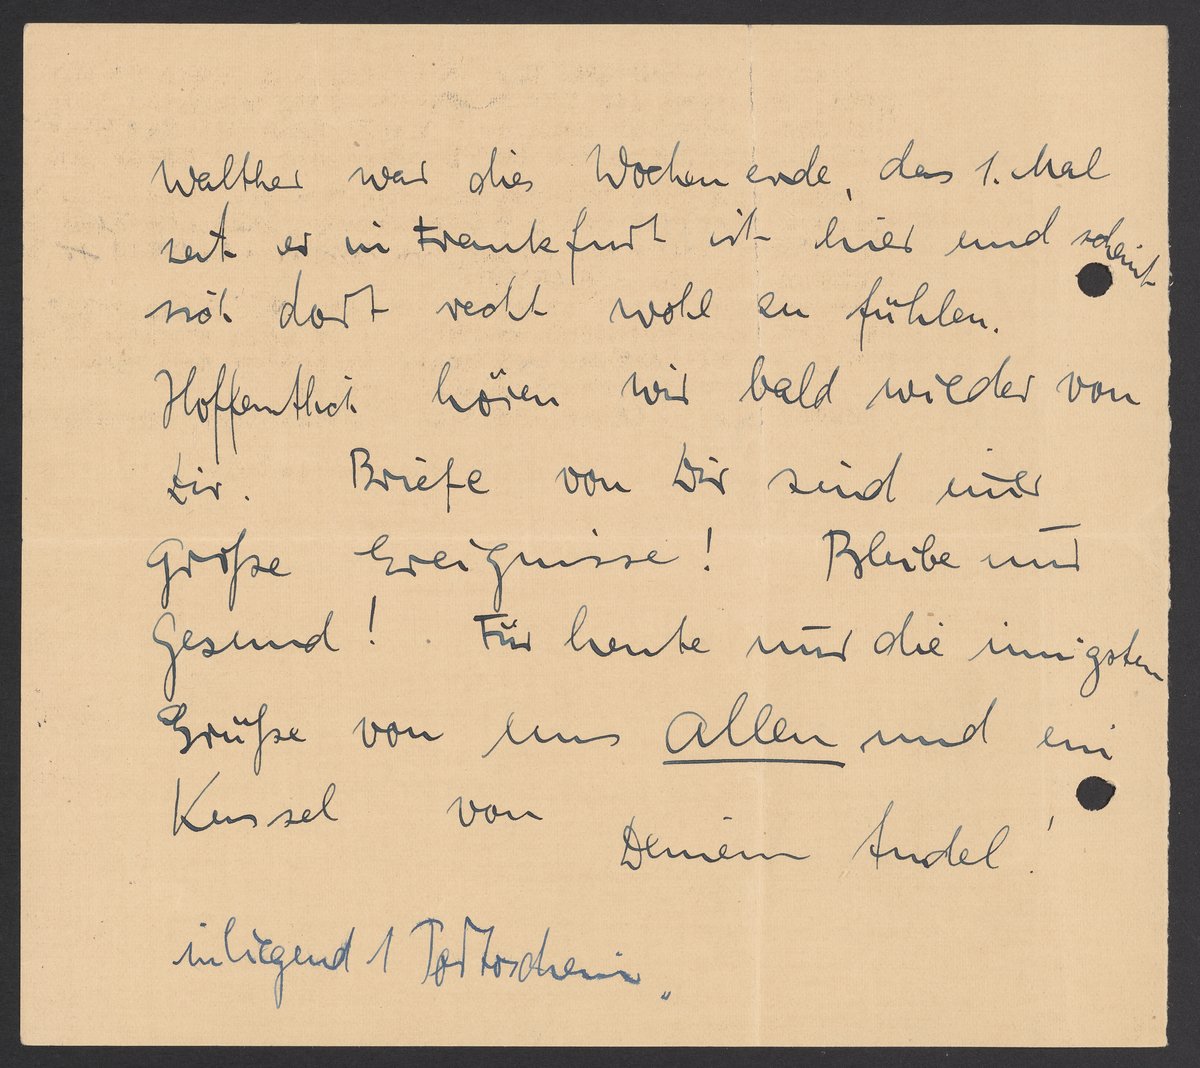 Walther war dies Wochenende, das 1. Mal
seit er in Frankfurt ist hier und scheint
sich dort recht wohl zu fühlen.
Hoffentlich hören wir bald wieder von
Dir. Briefe von Dir sind immer
große Ereignisse! Bleibe nur
gesund! Für heute nur die innigsten
Grüße von uns allen und ein
Kussel von
Deinem Andel!
inliegend 1 Portoschein